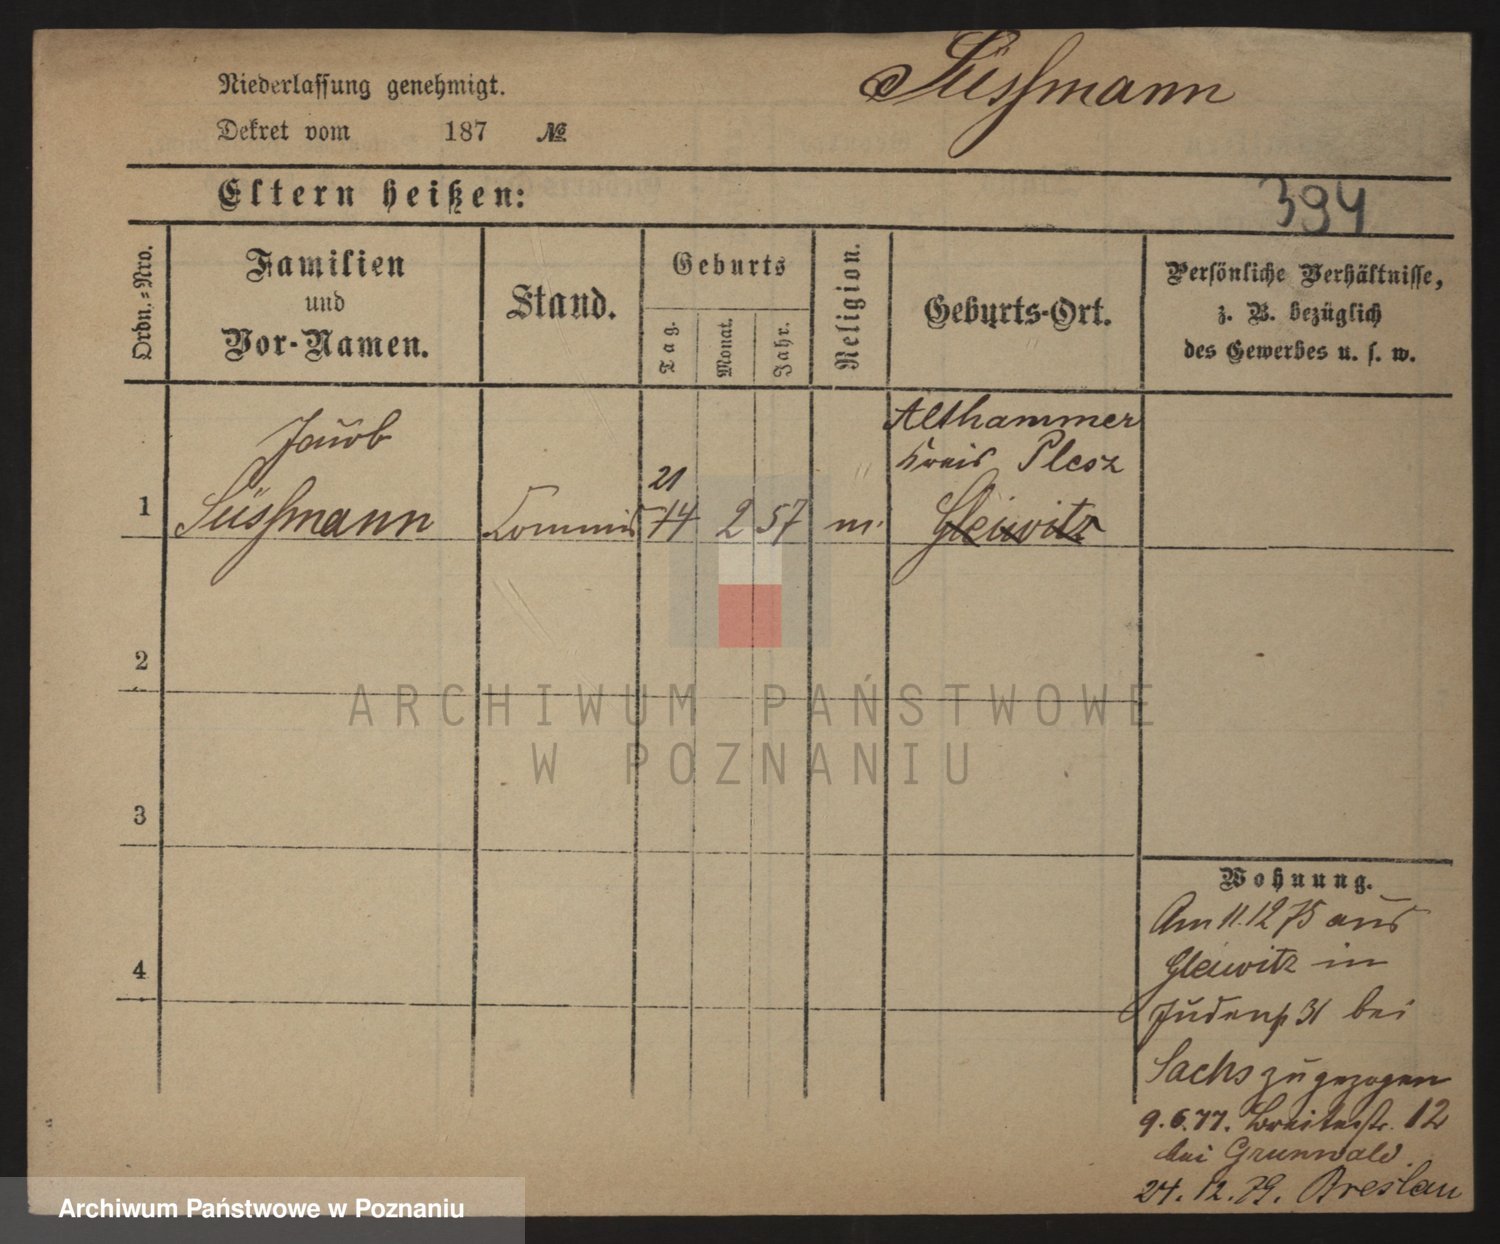 Süssmann
Niederlassung genehmigt.
Dekret vom 187 №
Eltern heißen:
394
Ordn.-Nro.
Familien
und
Vor-Namen.
Stand.
Geburts
Tag.
Monat.
Jahr.
Religion.
Geburts-Ort.
Persönliche Verhältnisse,
z. B. bezüglich
des Gewerbes u. s. w.
Jacob
Althammer
Kreis Plesz
21
1 Süssmann Commis 14 2 57 m. Gleiwitz
2
3
4
ARCHIWUM PAŃSTWOWE
W POZNANIU
Wohnung.
Am 11.12 75 aus
Gleiwitz in
Judenst 31 bei
Sachs zugezogen
9.6.77. Breitestr. 12
bei Grunwald.
24.12.79. Breslau
Archiwum Państwowe w Poznaniu